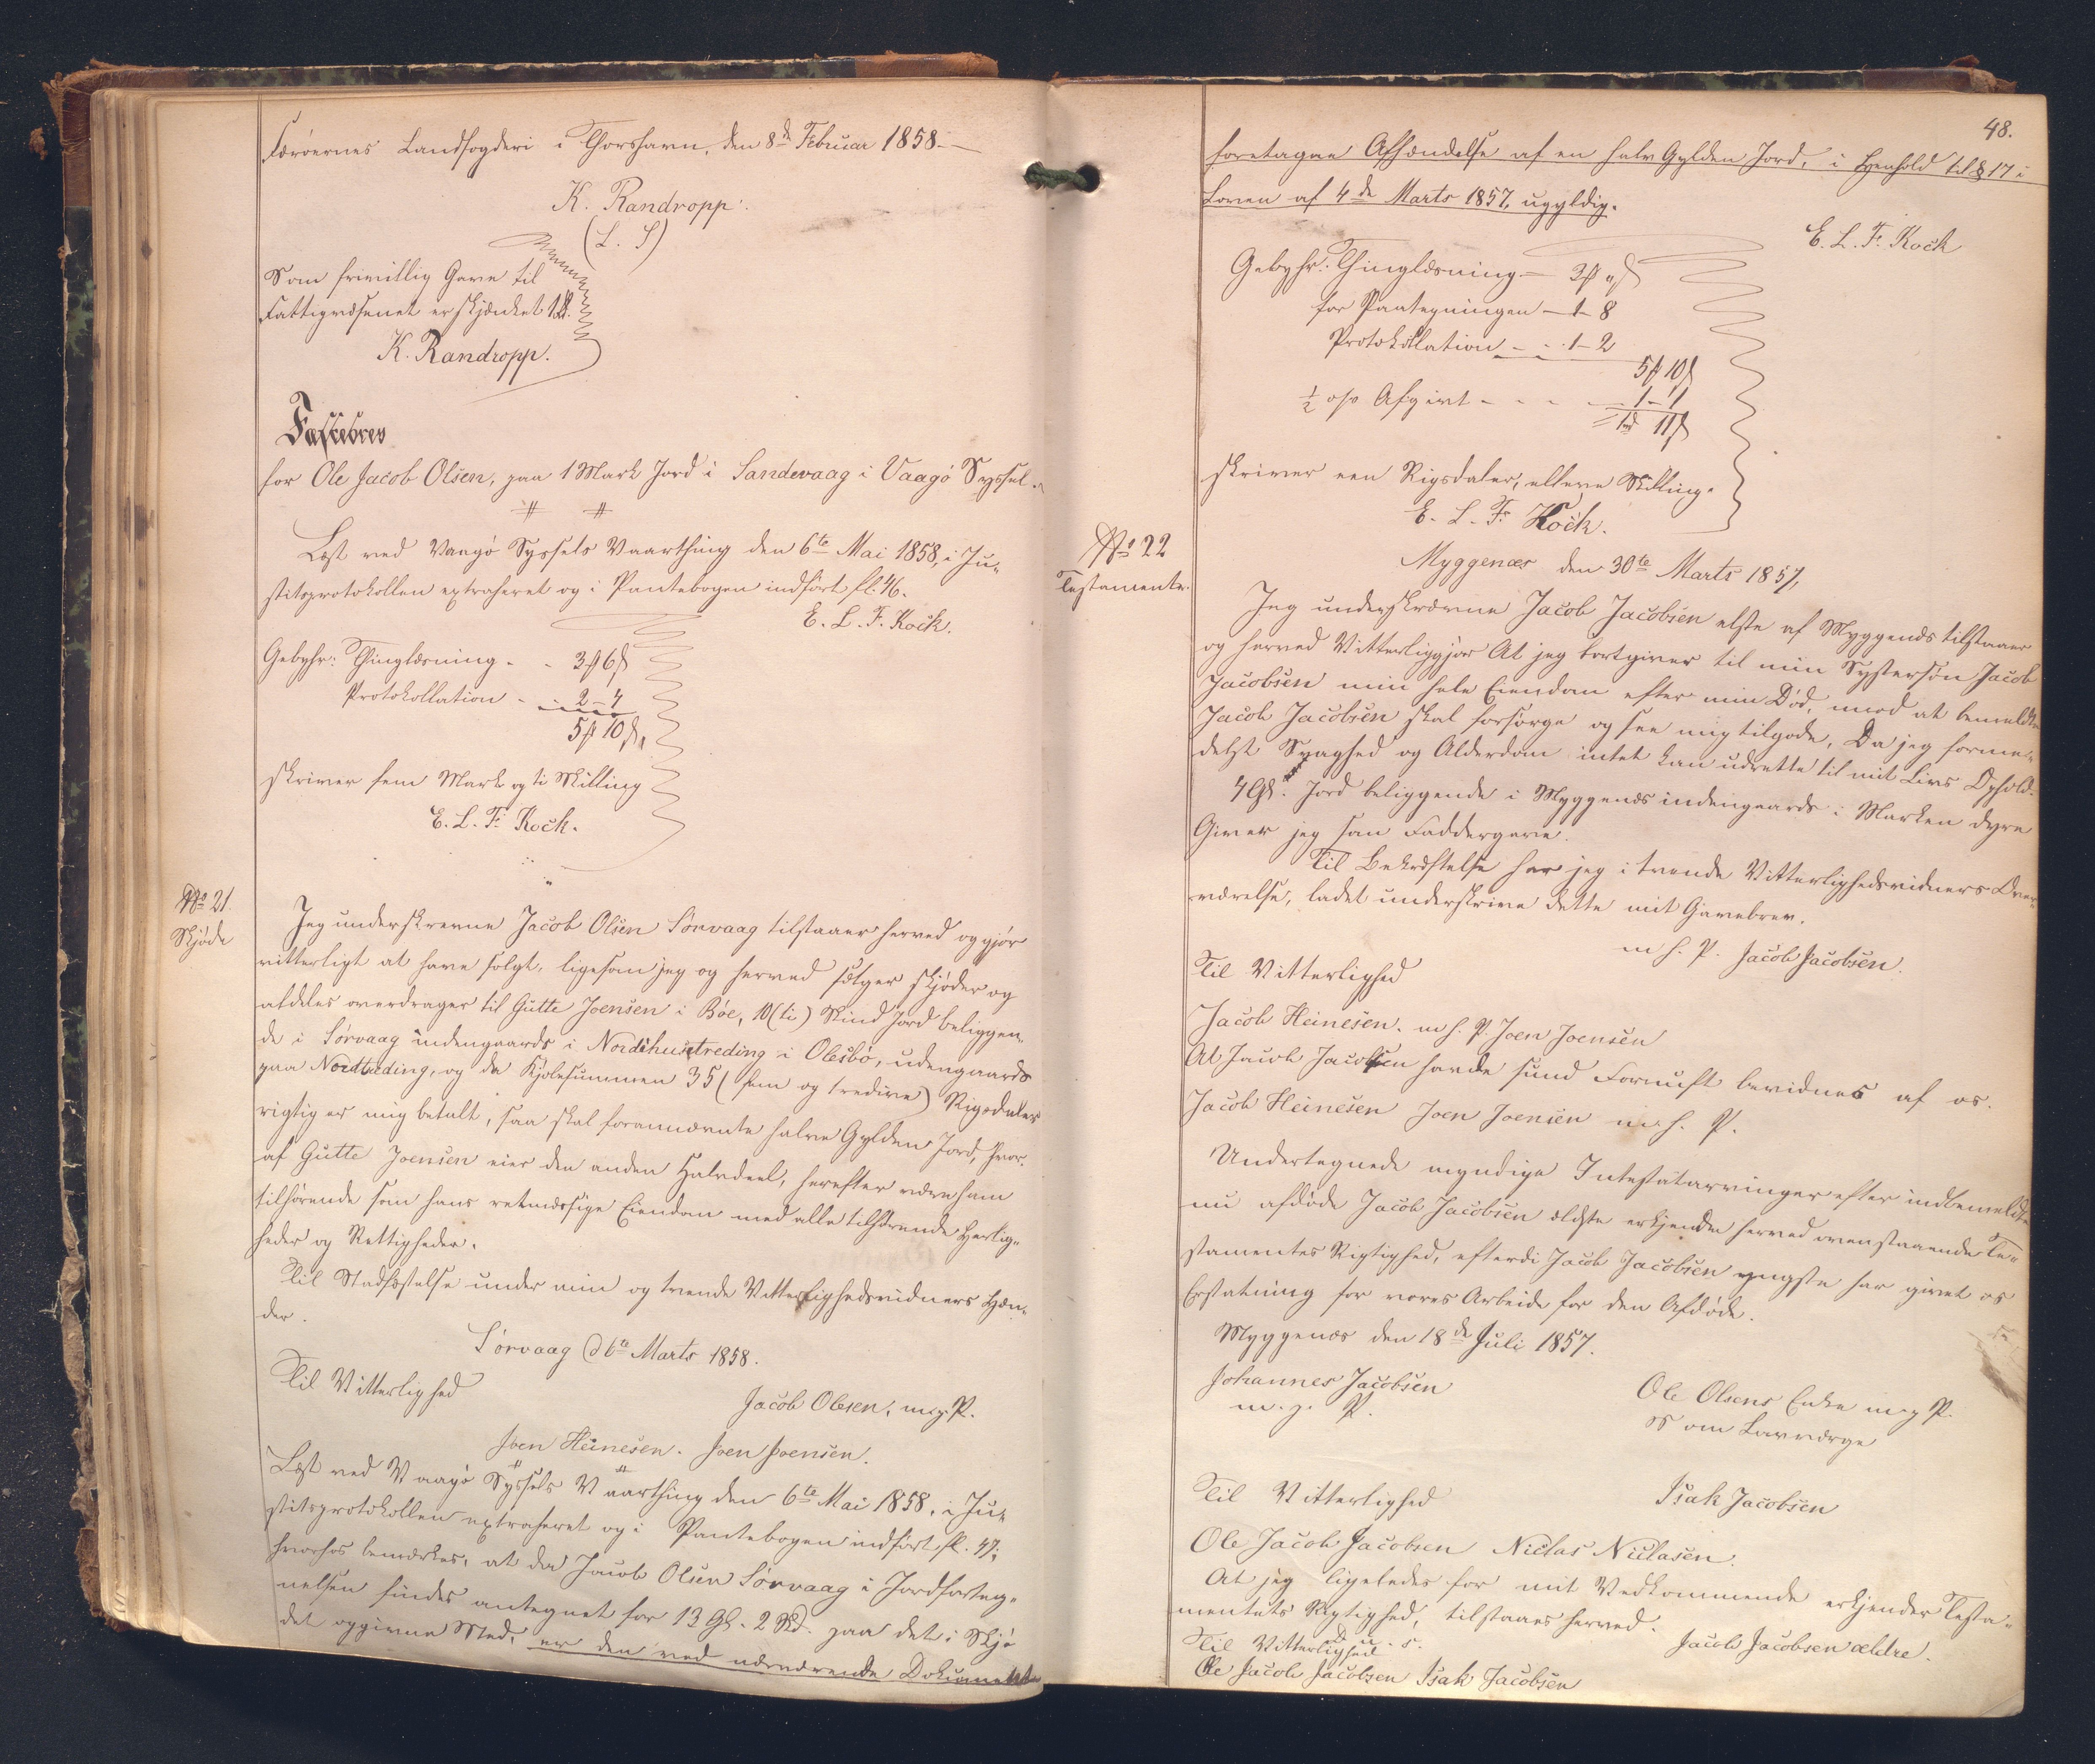 Færöernes Landfogderi i Thorshavn, den 8de Februar 1858.
K. Randropp.
(L. S)
Som frivillig Gave til
Fattigvæsenet er skjænket 1
K. Randropp.
Fæstebrev
for Ole Jacob Olsen, paa 1 Mark Jord i Sandevaag i Vaagö Syssel.
Læst ved Vaagö Syssels Vaarthing den 6te Mai 1858, i Ju-
stitsprotokollen extraheret og i Pantebogen indfört fl. 46.
E. L. F. Kock.
Gebyhr: Thinglæsning - - 3 6
Protokollation - 2 - 4
5 10
skriver fem Mark og ti Skilling
E. L. F. Kock.
No 21.
Skjöde
Jeg underskrevne Jacob Olsen Sörvaag tilstaaer herved og gjör
vitterligt at have solgt, ligesom jeg og herved sælger skjöder og
afdeles overdrager til Gutte Joensen i Böe, 10 (ti) Skind Jord beliggen-
de i Sörvaag indengaards i Nordihustreding i Olesbö, udengaards
paa Nordtreding, og da Kjöbesummen 35 (fem og tredive) Rigsdaler
rigtig er mig betalt, saa skal forannævnte halve Gylden Jord, hvor-
af Gutte Joensen eier den anden Halvdeel, herefter være ham
tilhörende som hans retmæssige Eiendom med alle tilhörende Herlig-
heder og Rettigheder.
Til Stadfæstelse under min og tvende Vitterlighedsvidners Hæn-
der.
Sörvaag d 6te Marts 1858.
Til Vitterlighed
Jacob Olesen, m. g. P.
Joen Heinesen. Joen Joensen.
Læst ved Vaagö Syssels Vaarthing den 6te Mai 1858, i Ju-
stitsprotokollen extraheret og i Pantebogen indfört fl. 47,
hvorhos bemærkes, at da Jacob Olsen Sörvaag i Jordforteg-
nelsen findes antegnet for 13 Gl. 2 Sk. paa det i Skjö-
det opgivne Sted, er den ved nærværende Dokument
48.
foretagne Afhændelse af en halv Gylden Jord, i Henhold til § 17 i
Loven af 4de Marts 1857, ugyldig.
E. L. F. Kock
Gebyhr: Thinglæsning - 3 "
for Paategningen - 1 - 8
Protokollation - - 1 - 2
5 10
½ o/o Afgivt - - - 1 - 1
1 11
skriver een Rigsdaler, elleve Skilling.
E. L. F. Kock.
No 22
Testamente.
Myggenæs den 30te Marts 1857,
Jeg underskrævne Jacob Jacobsen elste af Myggenæs tilstaaer
og herved Vitterliggjör At jeg bortgiver til min Systersön Jacob
Jacobsen min hele Eiendom efter min Död, mod at bemeldte
Jacob Jacobsen skal forsörge og see mig tilgode, Da jeg forme-
delst Svaghed og Alderdom intet kan udrette til mit Livs Ophold.
4 Gl. Jord beliggende i Myggenæs indengaards i Marken dyre
Giver jeg som Faddergave.
Til Bekræftelse har jeg i tvende Vitterlighedsvidners Over-
værelse, ladet underskrive dette mit Gavebrev.
m. h. P. Jacob Jacobsen.
Til Vitterlighed
Jacob Heinesen. m. h. P. Joen Joensen
At Jacob Jacobsen havde sund Fornuft bevidnes af os.
Jacob Heinesen Joen Joensen m. h. P.
Undertegnede myndige Intestatarvinger efter indbemeldte
nu afdöde Jacob Jacobsen ældste erkjende herved ovenstaaende Te-
stamentes Rigtighed, efterdi Jacob Jacobsen yngste har givet os
Erstatning for vores Arbeide for den Afdöde.
Myggenæs den 18de Juli 1857.
Johannes Jacobsen
m. g. P.
Ole Olsens Enke m. g. P.
Som Lavværge
Til Vitterlighed
Isak Jacobsen
Ole Jacob Jacobsen Niclas Niclasen.
At jeg ligeledes for mit Vedkommende erkjender Testa-
mentets Rigtighed, tilstaaes herved.
D. u. s.
Jacob Jacobsen ældre.
Til Vitterlighed
Ole Jacob Jacobsen Isak Jacobsen